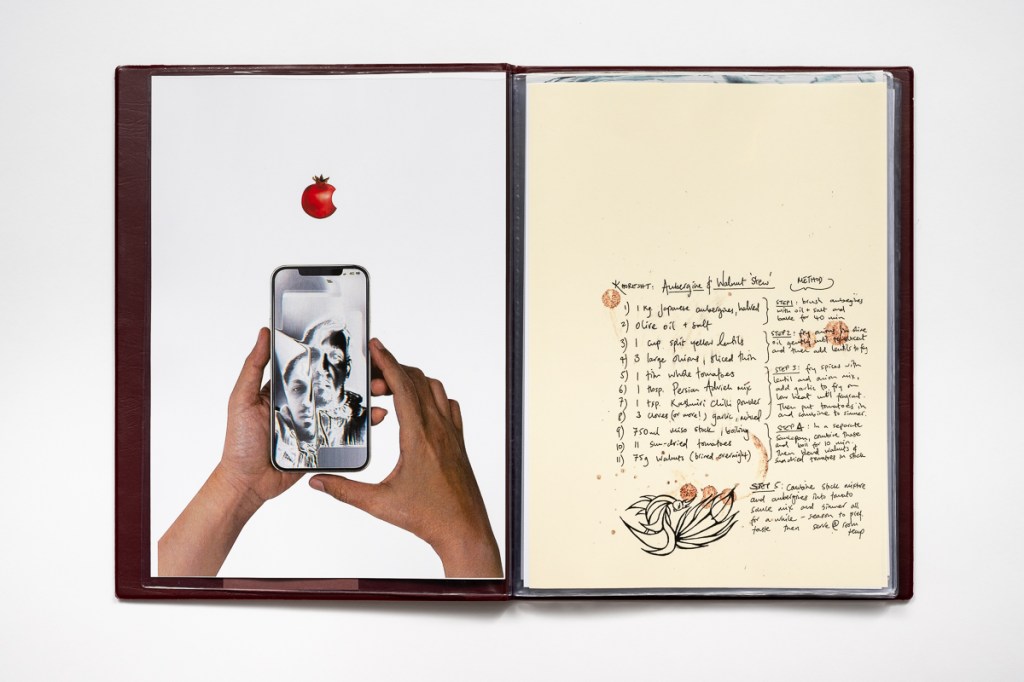 KHORESHT: Aubergine & Walnut 'Stew'
1) 1 kg. Japanese aubergines, halved
2) Olive oil + salt
3) 1 cup split yellow lentils
4) 3 large onions, sliced thin
5) 1 tin whole tomatoes
6) 1 tbsp. Persian Advieh mix
7) 1 tsp. Kashmiri chilli powder
8) 3 cloves (or more!) garlic, minced
9) 750ml miso stock, boiling
10) 11 sun-dried tomatoes
11) 75g walnuts (brined overnight)
METHOD
STEP 1: brush aubergines
with oil + salt and
bake for 40 min
STEP 2: fry onions in olive
oil gently until translucent
and then add lentils to fry
STEP 3: fry spices with
lentil and onion mix,
add garlic to fry on
low heat until fragrant.
Then put tomatoes in
and combine to simmer.
STEP 4: In a separate
saucepan, combine
and boil for 10 min.
Then blend walnuts &
sun-dried tomatoes in stock
STEP 5: Combine stock mixture
and aubergines into tomato
sauce mix and simmer all
for a while - season to pref.
taste then serve @ room
temp